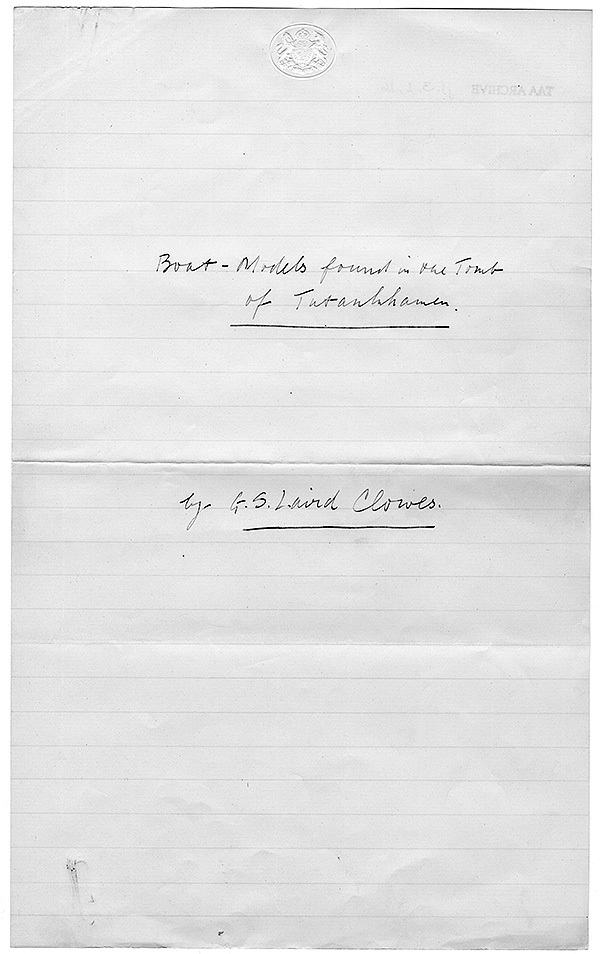 TAA ARCHIVE
Boat-Models found in the Tomb
of Tutankhamen.
by G.S. Laird Clowes.